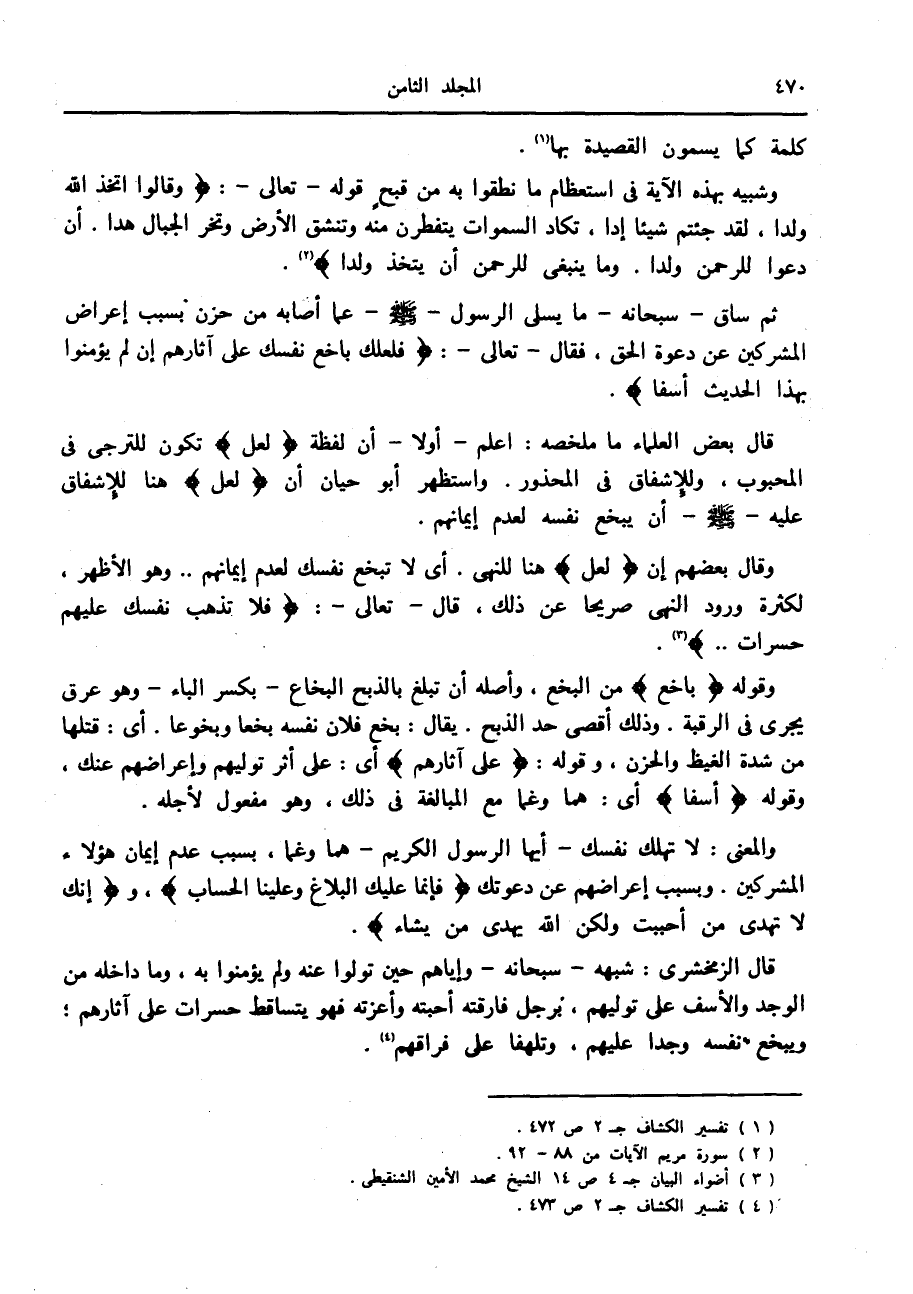 ٤٧٠ المجلد الثامن
كلمة كما يسمون القصيدة بها(١) .
وشبيه بهذه الآية فى استعظام ما نطقوا به من قبح قوله – تعالى – : ﴿ وقالوا اتخذ الله
ولدا ، لقد جئتم شيئا إدا ، تكاد السموات يتفطرن منه وتنشق الأرض وتخر الجبال هدا . أن
دعوا للرحمن ولدا . وما ينبغى للرحمن أن يتخذ ولدا ﴾(٢) .
ثم ساق – سبحانه – ما يسلى الرسول – ﷺ – عما أصابه من حزن بسبب إعراض
المشركين عن دعوة الحق ، فقال – تعالى – : ﴿ فلعلك باخع نفسك على آثارهم إن لم يؤمنوا
بهذا الحديث أسفا ﴾ .
قال بعض العلماء ما ملخصه : اعلم – أولا – أن لفظة ﴿ لعل ﴾ تكون للترجى فى
المحبوب ، وللإشفاق فى المحذور . واستظهر أبو حيان أن ﴿ لعل ﴾ هنا للإشفاق
عليه – ﷺ – أن يبخع نفسه لعدم إيمانهم .
وقال بعضهم إن ﴿ لعل ﴾ هنا للنهى . أى لا تبخع نفسك لعدم إيمانهم .. وهو الأظهر ،
لكثرة ورود النهى صريحا عن ذلك ، قال – تعالى – : ﴿ فلا تذهب نفسك عليهم
حسرات .. ﴾(٣) .
وقوله ﴿ باخع ﴾ من البخع ، وأصله أن تبلغ بالذبح البخاع – بكسر الباء – وهو عرق
يجرى فى الرقبة . وذلك أقصى حد الذبح . يقال : بخع فلان نفسه بخعا وبخوعا . أى : قتلها
من شدة الغيظ والحزن ، و قوله : ﴿ على آثارهم ﴾ أى : على أثر توليهم وإعراضهم عنك ،
وقوله ﴿ أسفا ﴾ أى : هما وغما مع المبالغة فى ذلك ، وهو مفعول لأجله .
والمعنى : لا تهلك نفسك – أيها الرسول الكريم – هما وغما ، بسبب عدم إيمان هؤلا ء
المشركين . وبسبب إعراضهم عن دعوتك ﴿ فإنما عليك البلاغ وعلينا الحساب ﴾ ، و ﴿ إنك
لا تهدى من أحببت ولكن الله يهدى من يشاء ﴾ .
قال الزمخشرى : شبهه – سبحانه – وإياهم حين تولوا عنه ولم يؤمنوا به ، وما داخله من
الوجد والأسف على توليهم ، برجل فارقته أحبته وأعزته فهو يتساقط حسرات على آثارهم ؛
ويبخع نفسه وجدا عليهم ، وتلهفا على فراقهم(٤) .
( ١ ) تفسير الكشاف جـ ٢ ص ٤٧٢ .
( ٢ ) سورة مريم الآيات من ٨٨ – ٩٢ .
( ٣ ) أضواء البيان جـ ٤ ص ١٤ الشيخ محمد الأمين الشنقيطى .
( ٤ ) تفسير الكشاف جـ ٢ ص ٤٧٣ .